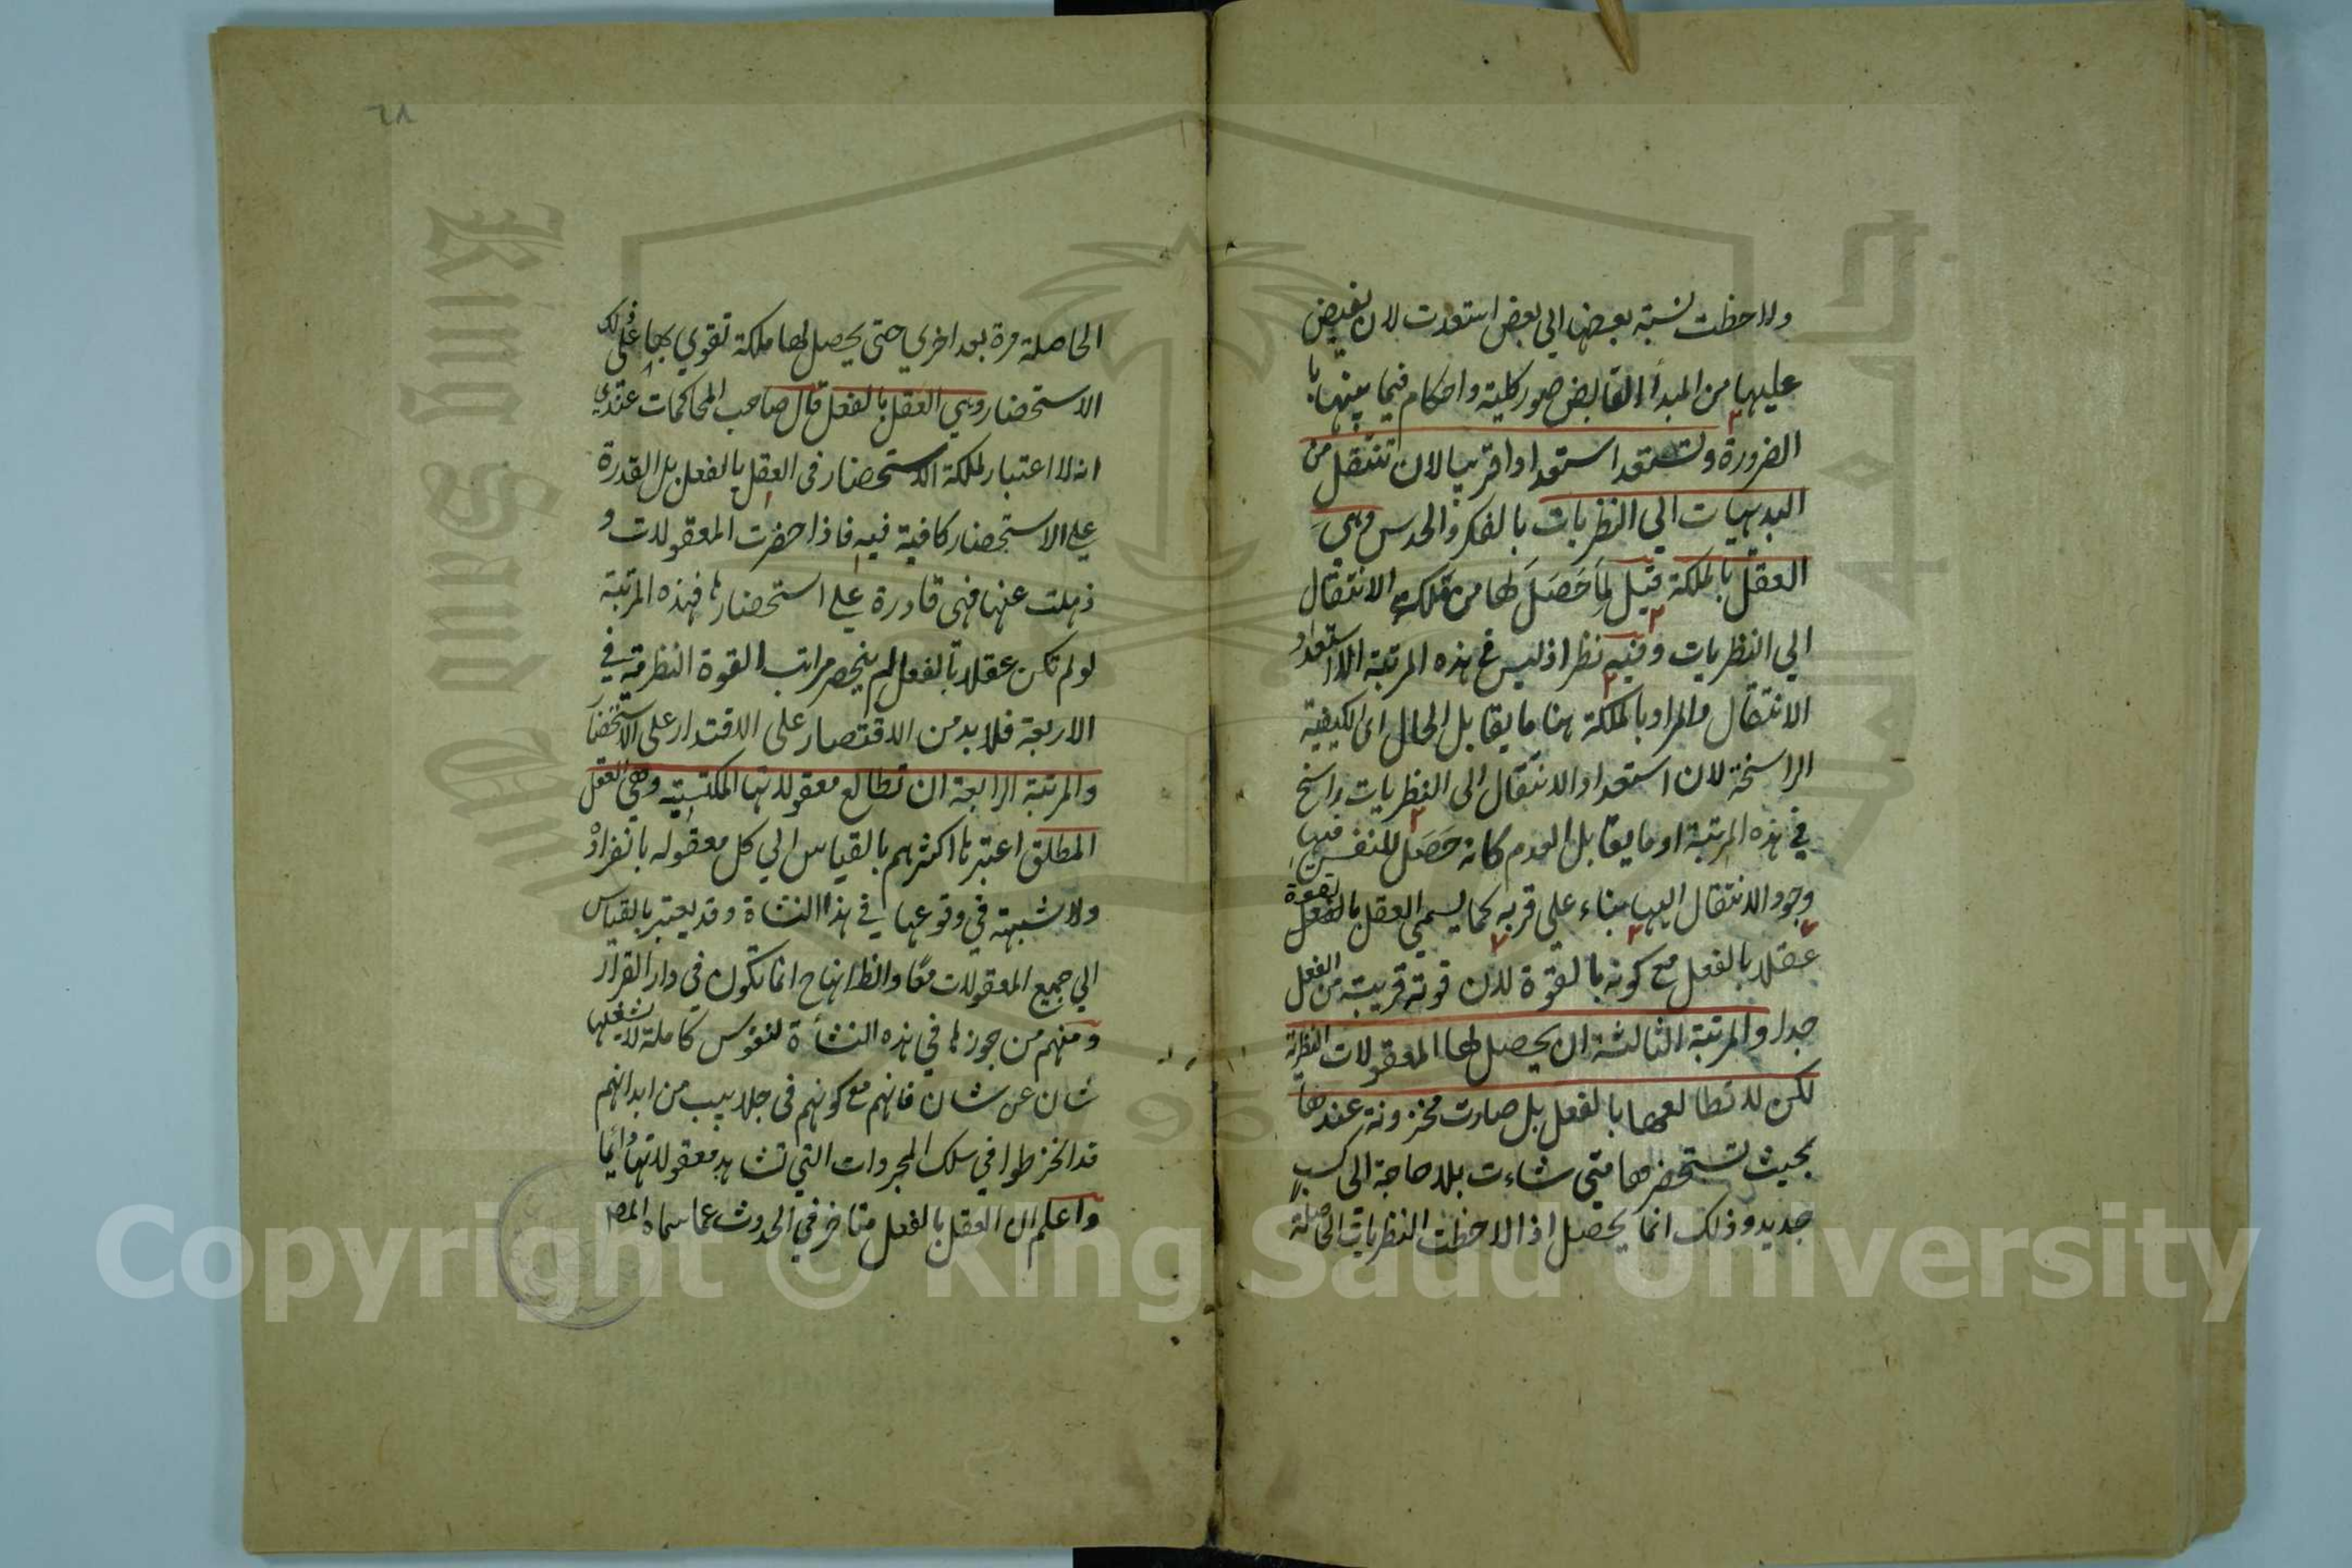 ولاحظت نسبة بعضها الي بعض استعدت لان يفيض
عليها من المبدأ الفايض صور كلية واحكام فيما بينها با
الضرورة وتستعد استعدادا قريبا لان تنتقل من
البديهيات الي النظريات بالفكر والحدس وهي
العقل بالملكة قيل لما حصل لها من ملكة الانتقال
الي النظريات وفيه نظر اذ ليس في هذه المرتبة الا استعداد
الانتقال والمراد بالملكة هنا ما يقابل الحال اي الكيفية
الراسخة لان استعداد الانتقال الى النظريات راسخ
في هذه المرتبة او ما يقابل العدم كانه حصل للنفس فيها
وجود الانتقال اليها بناء على قربه كما يسمي العقل بالفعل بقوة
عقلا بالفعل مع كونه بالقوة لان قوته قريبة من الفعل
جدا والمرتبة الثالثة ان يحصل لها المعقولات النظرية
لكن لا تطالعها بالفعل بل صارت مخزونة عندها
بحيث تستحضرها متي شاءت بلا حاجة الى كسب
جديد وذلك انما يحصل اذا لاحظت النظريات الحاصلة
٦٨
الحاصلة مرة بعد اخري حتى يحصل لها ملكة تقوي بها على ذلك
الاستحضار وهي العقل بالفعل قال صاحب المحاكمات عندي
انه لا اعتبار لملكة الاستحضار فى العقل بالفعل بل القدرة
علي الاستحضار كافية فيه فاذا حضرت المعقولات و
ذهلت عنها فهى قادرة علي استحضارها فهذه المرتبة
لو لم تكن عقلا بالفعل لم ينحصر مراتب القوة النظرية في
الاربعة فلا بد من الاقتصار على الاقتدار على الاستحضار
والمرتبة الرابعة ان تطالع معقولاتها المكتسبة وهي العقل
المطلق اعتبرها اكثرهم بالقياس الي كل معقوله بانفراده
ولا شبهة في وقوعها في هذا النشاة وقد يعتبر بالقياس
الي جميع المعقولات معًا والظاهرانها ح انما تكون في دار القرار
ومنهم من جوزها في هذه النشأة لنفوس كاملة لا يشغلها
شان عن شان فانهم مع كونهم فى جلابيب من ابدانهم
قد انخرطوا في سلك المجردات التي تشاهد معقولاتها دائما
واعلم ان العقل بالفعل متاخر في الحدوث عما سماه المصـ
Copyright © King Saud University